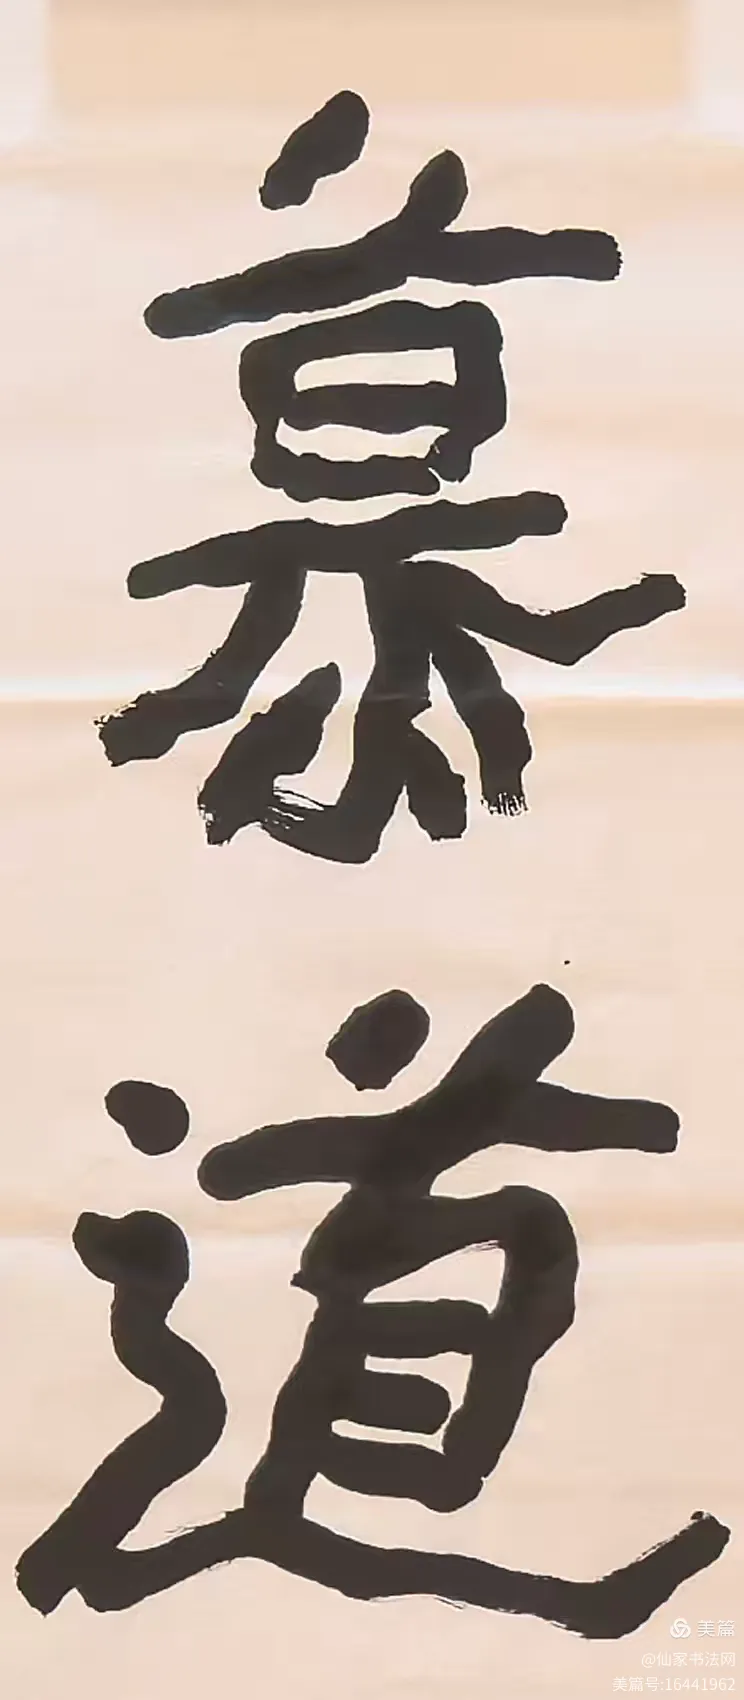 慕
道
美篇
@仙家书法网
美篇号:16441962